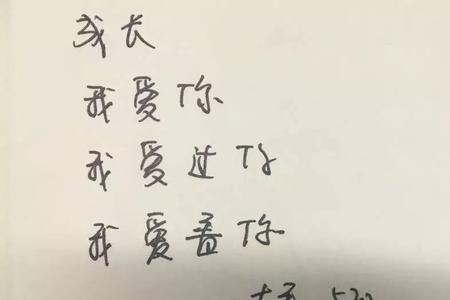 成长
我爱你
我爱过你
我爱着你